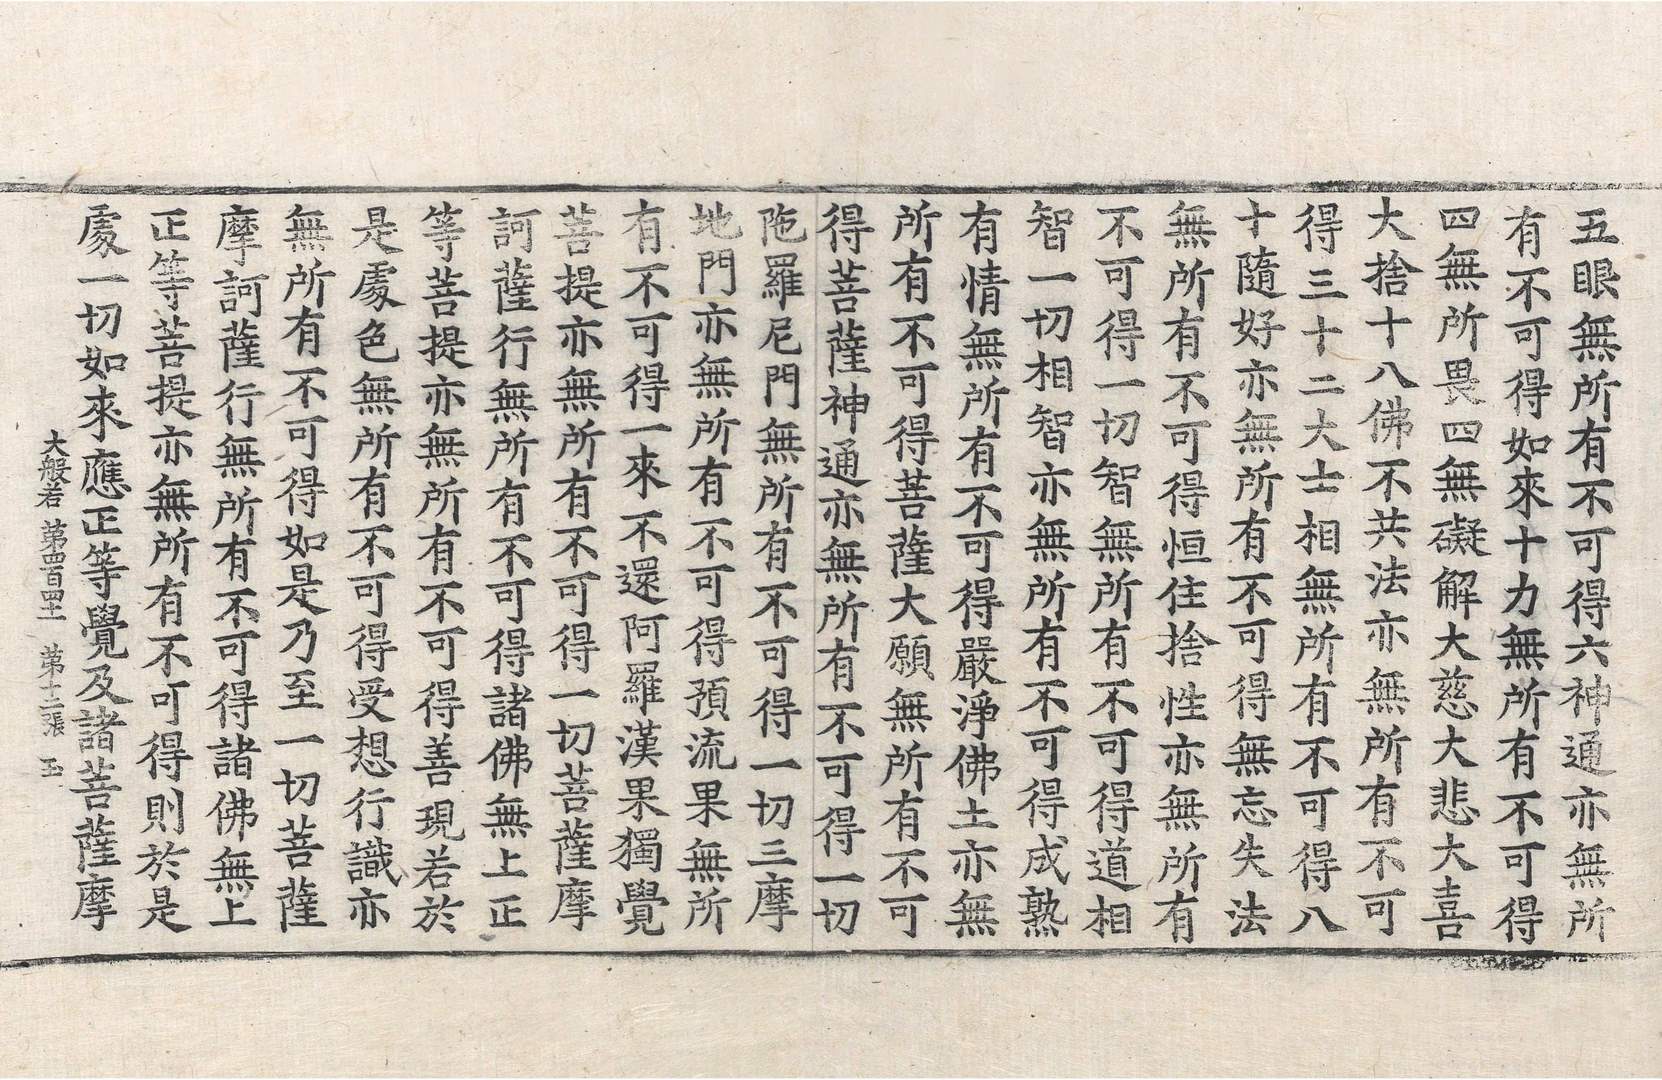 五眼無所有不可得六神通亦無所
有不可得如來十力無所有不可得
四無所畏四無礙解大慈大悲大喜
大捨十八佛不共法亦無所有不可
得三十二大士相無所有不可得八
十隨好亦無所有不可得無忘失法
無所有不可得恒住捨性亦無所有
不可得一切智無所有不可得道相
智一切相智亦無所有不可得成熟
有情無所有不可得嚴淨佛土亦無
所有不可得菩薩大願無所有不可
得菩薩神通亦無所有不可得一切
陁羅尼門無所有不可得一切三摩
地門亦無所有不可得預流果無所
有不可得一來不還阿羅漢果獨覺
菩提亦無所有不可得一切菩薩摩
訶薩行無所有不可得諸佛無上正
等菩提亦無所有不可得善現若於
是處色無所有不可得受想行識亦
無所有不可得如是乃至一切菩薩
摩訶薩行無所有不可得諸佛無上
正等菩提亦無所有不可得則於是
處一切如來應正等覺及諸菩薩摩
大般若 第四百四十一 第十二張 玉